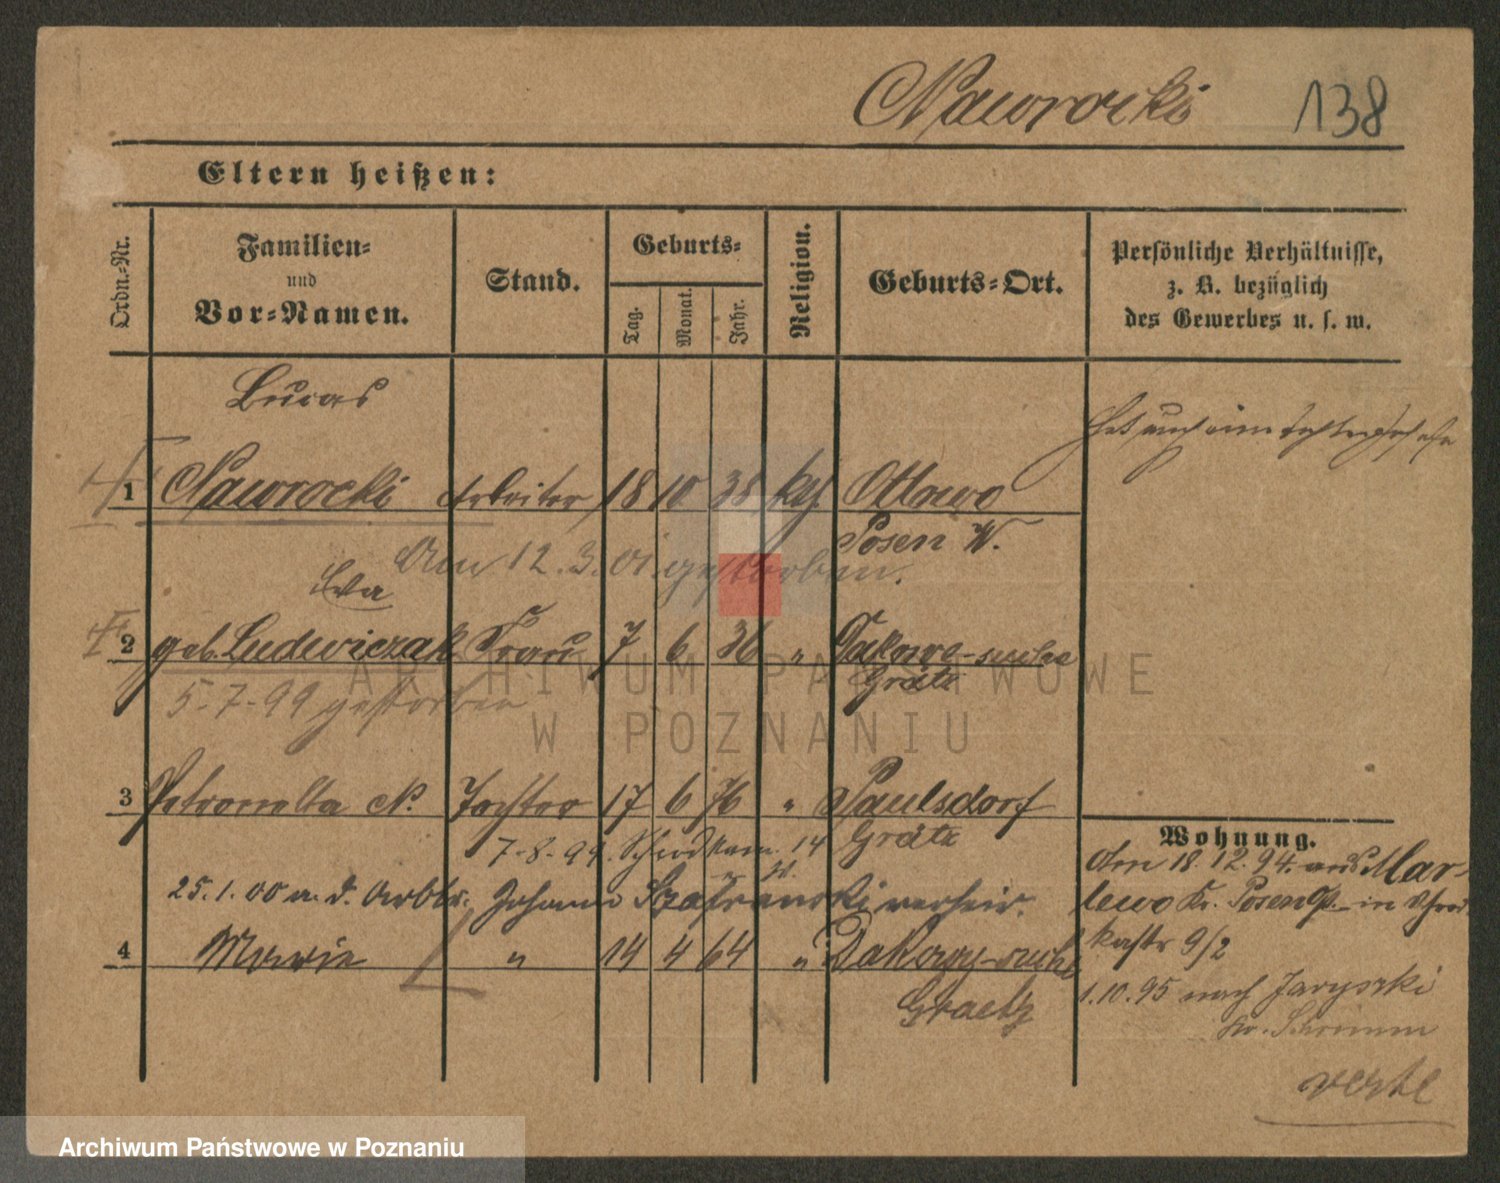 Nawrocki 138
Eltern heißen:
Ordn.-Nr.
Familien-
und
Vor-Namen.
Stand.
Geburts-
Tag.
Monat.
Jahr.
Religion.
Geburts-Ort.
Persönliche Verhältnisse,
z. B. bezüglich
des Gewerbes u. s. w.
Lucas
Hat auch eine
1 Nawrocki Arbeiter 18 10 38 kth. Ottowo
Posen W.
Am 12.3.01. gestorben.
Eva
2 geb. Ludwiczak Frau 7 6 36 "
Grätz
5-7-99 gestorben
3 Petronella N. Tochter 17 6 76 " Paulsdorf
Grätz
7-8-94. 14
25.1.00 m. d. Arbtr. Johann Szafranski verheir.
4 Marie " 14 4 64 " Dakowy-
Graetz
Wohnung.
Am 18.12.94. aus Mar-
lewo Kr. Posen O. in
9/2
1.10.95 nach Jaryszki
Kr. Schrimm
verte
ARCHIWUM PAŃSTWOWE
W POZNANIU
Archiwum Państwowe w Poznaniu